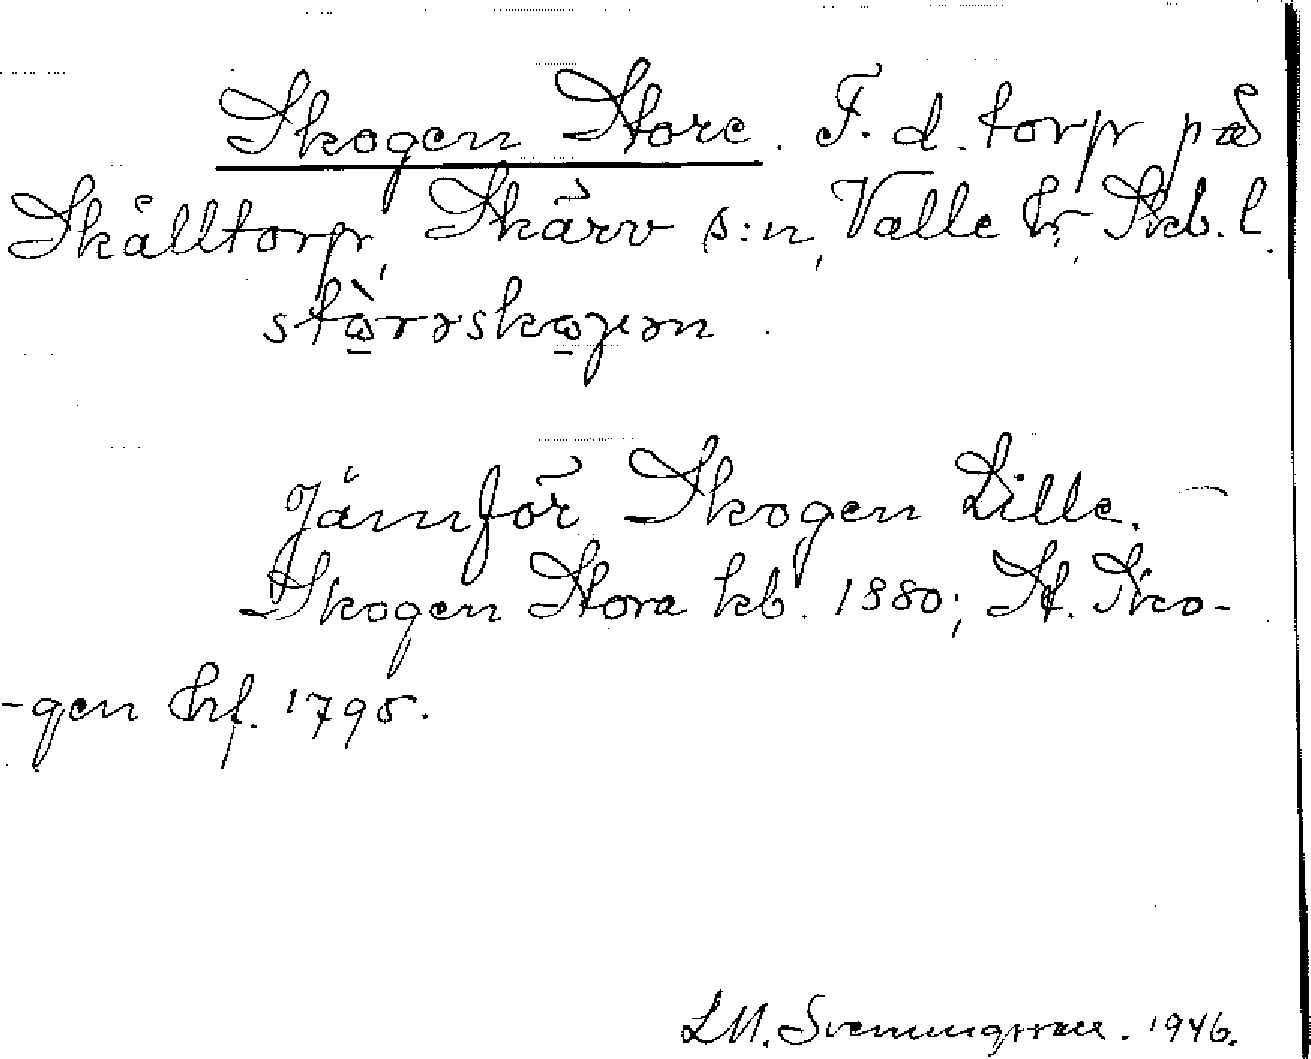 Skogen Store. F. d. torp på
Skålltorp, Skärv s:n, Valle hr, Skb. l.
Jämför Skogen Lille.
Skogen Stora kb. 1880; St. Sko-
-gen hf. 1795.
LM. Svenungsson. 1946.